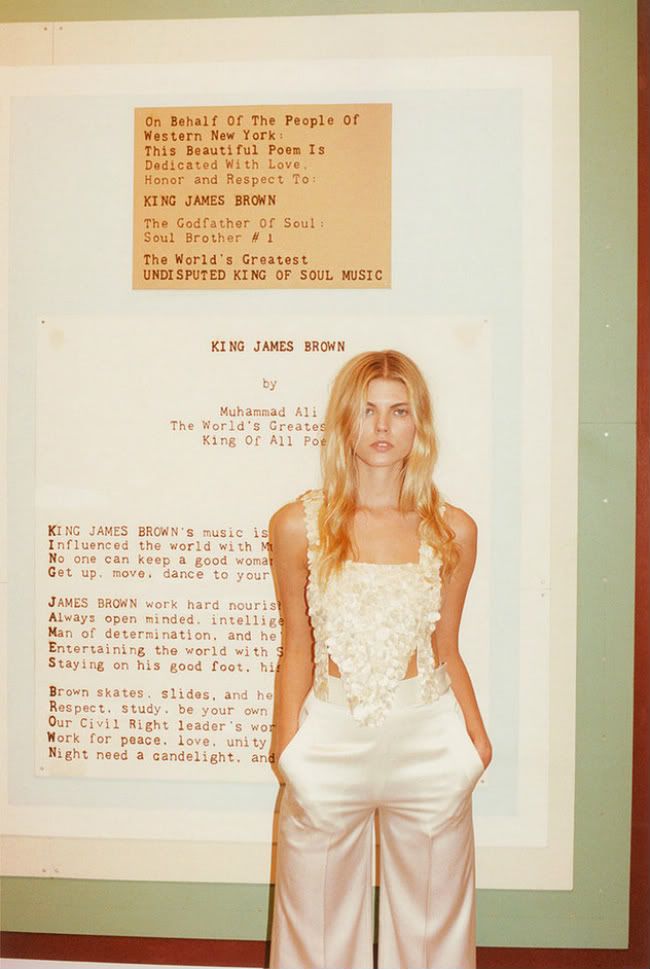 On Behalf Of The People Of
Western New York:
This Beautiful Poem Is
Dedicated With Love,
Honor and Respect To:
KING JAMES BROWN
The Godfather Of Soul:
Soul Brother # 1
The World's Greatest
UNDISPUTED KING OF SOUL MUSIC
KING JAMES BROWN
by
Muhammad Ali
The World's
King Of All
KING JAMES BROWN's music is
Influenced the world with
No one can keep a good
Get up, move, dance to your
JAMES BROWN work hard
Always open minded,
Man of determination, and
Entertaining the world with
Staying on his good foot,
Brown skates, slides, and
Respect, study, be your own
Our Civil Right leader's
Work for peace, love, unity
Night need a candelight,